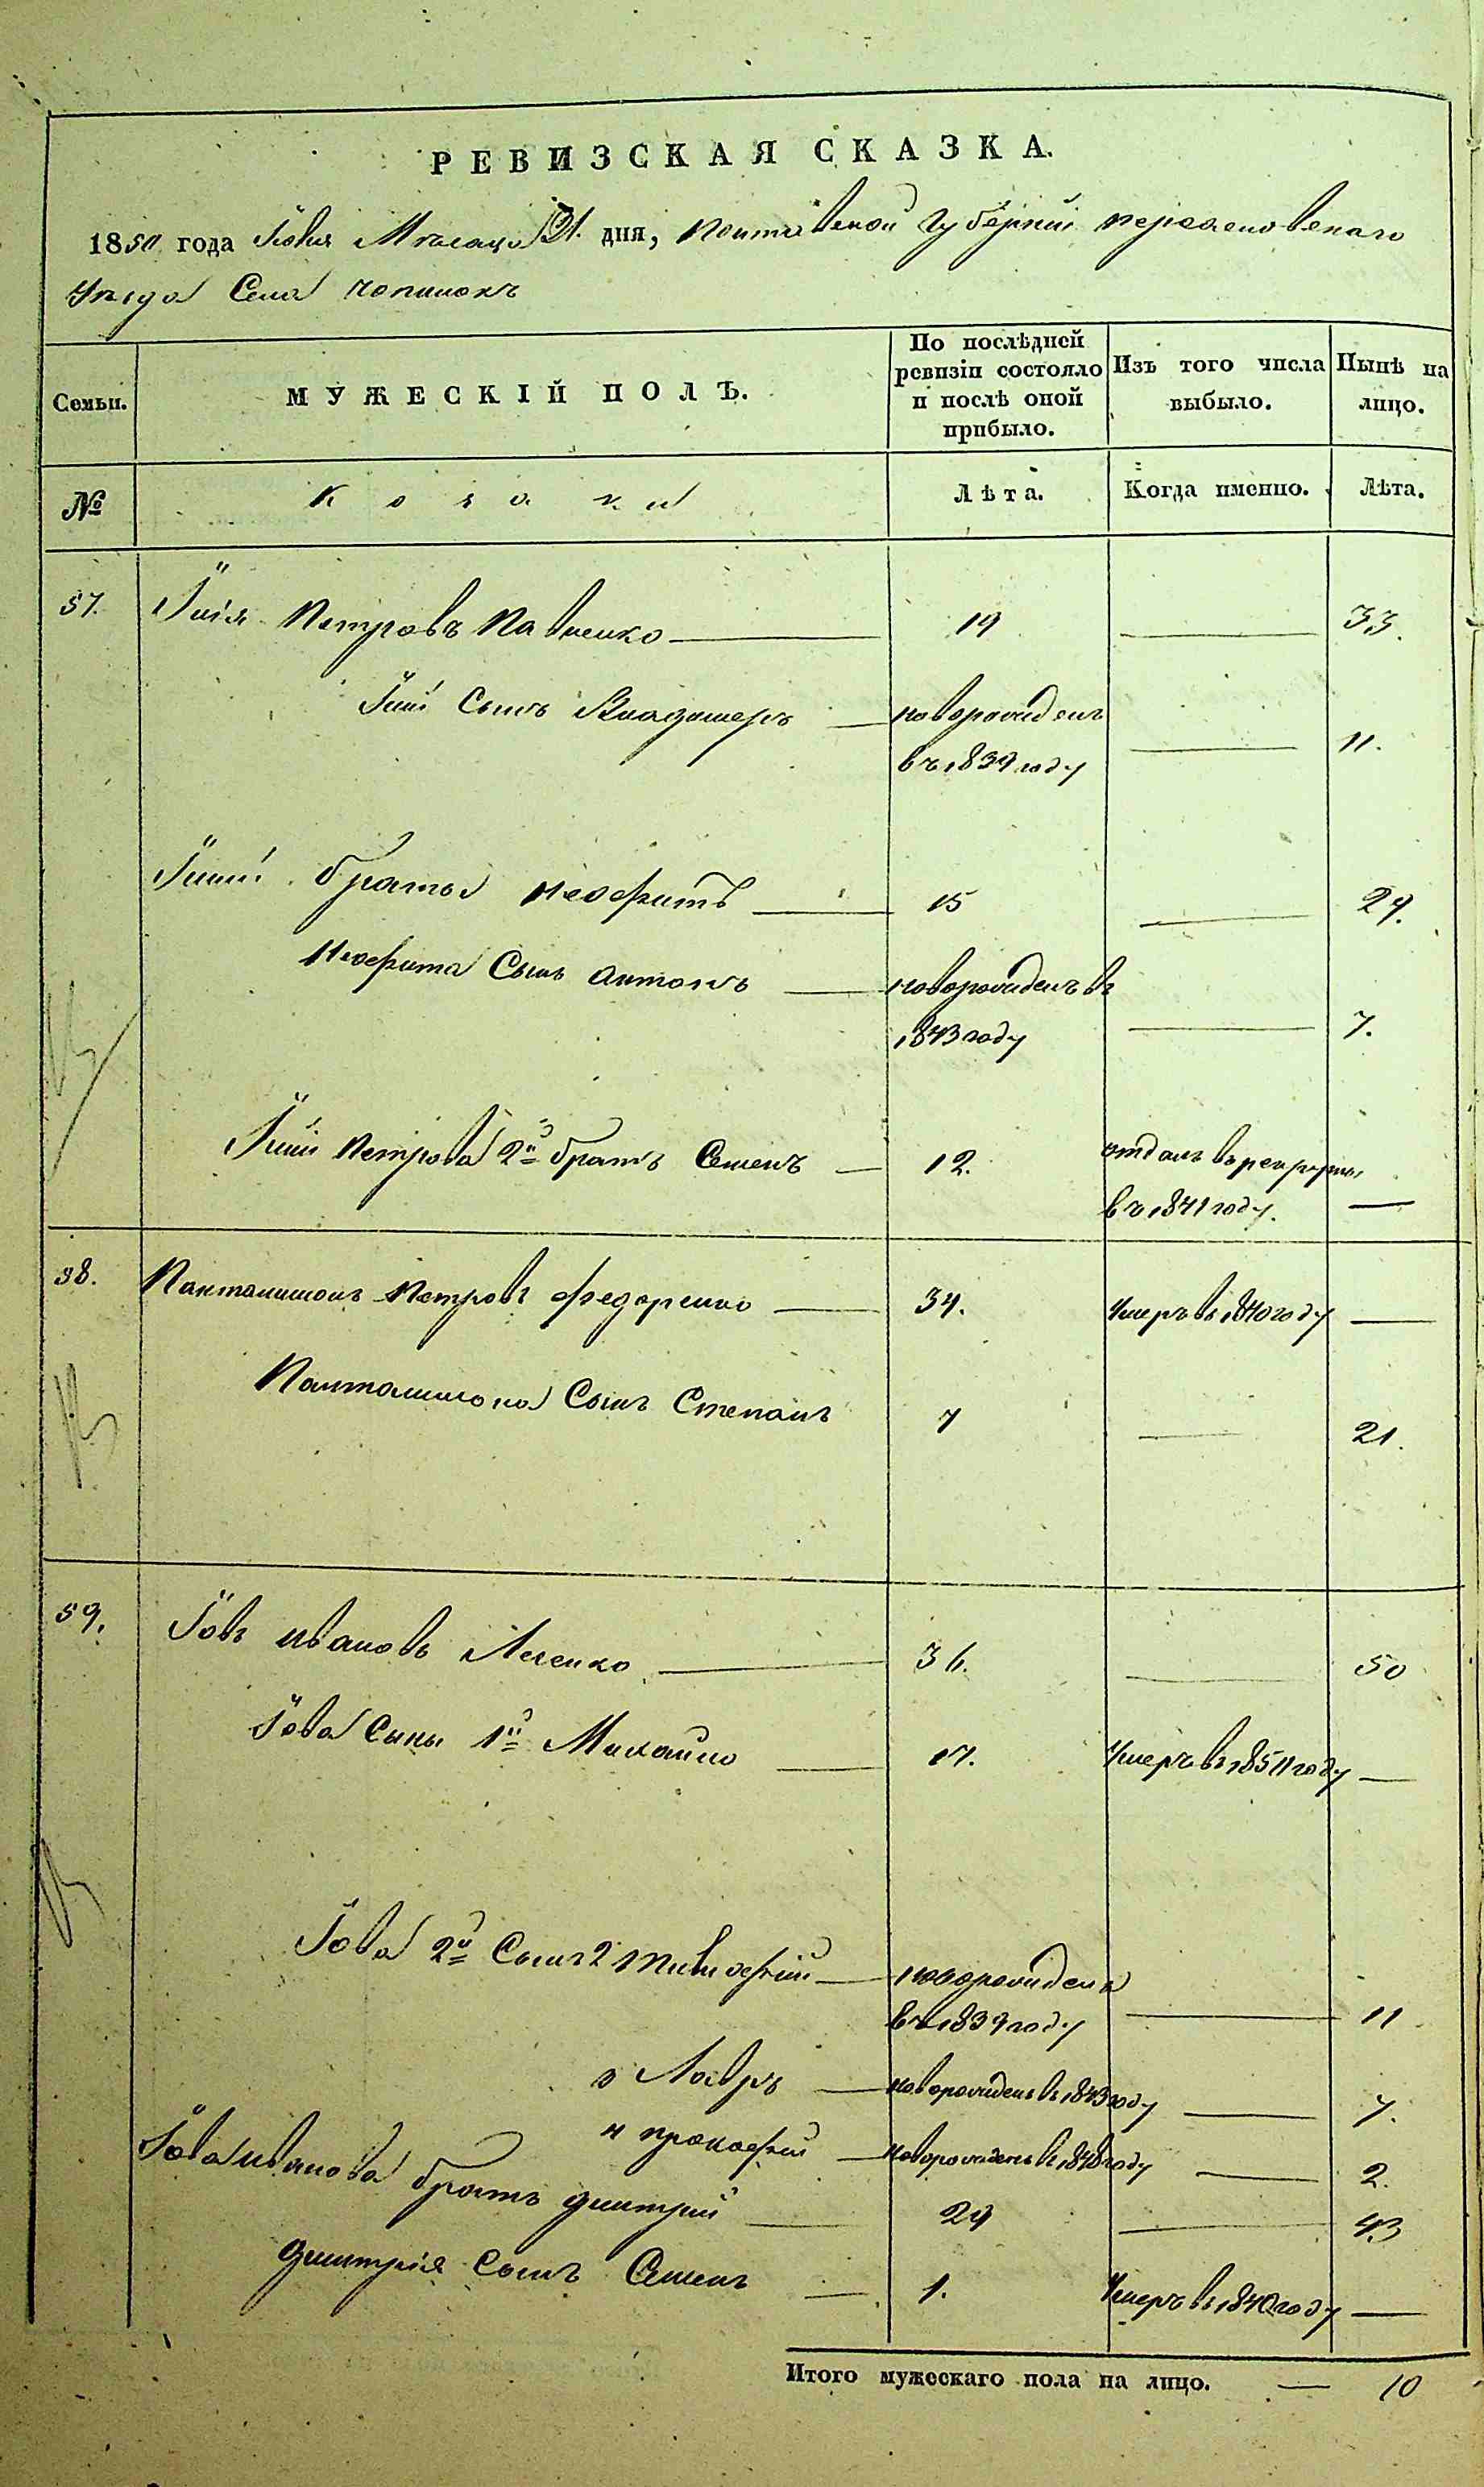 РЕВИЗСКАЯ СКАЗКА.
1850 года Іюня Мѣсяца 31 дня, Полтавской Губерніи переяславскаго
Уѣзда Села Чопилокъ
Семьи.
МУЖЕСКІЙ ПОЛЪ.
По послѣдней ревизіи состояло и послѣ оной прибыло.
Изъ того числа выбыло.
Нынѣ на лицо.
№
Козаки
Лѣта.
Когда именно.
Лѣта.
57. Илія Петровъ Павленко — 19 — 33.
Иліи Сынъ Владимеръ — новорожденъ
въ 1839 году — 11.
Иліи братья Неофитъ — 15 — 29.
Неофита Сынъ Антонъ — новорожденъ въ
1843 году — 7.
Иліи Петрова 2й братъ Семенъ — 12. отданъ в рекруты
въ 1841 году. —
58. Панталимонъ Петровъ Федоренко — 34. Умеръ въ 1840 году —
Панталимона Сынъ Степанъ 7 — 21.
59. Іовъ Ивановъ Лесенко — 36. — 50
Іова Сыны 1й Михайло — 17. Умеръ въ 1850 году —
Іова 2й Сынъ 2 Тимофей — новорожденъ
въ 1839 году — 11
3 Лавръ — новорожденъ въ 1843 году — 7.
4 прокофій — новорожденъ въ 1848 году — 2.
Іова Иванова братъ Дмитрій — 29 — 43
Дмитрія Сынъ Семенъ — 1. Умеръ въ 1840 году —
Итого мужескаго пола на лицо. — 10